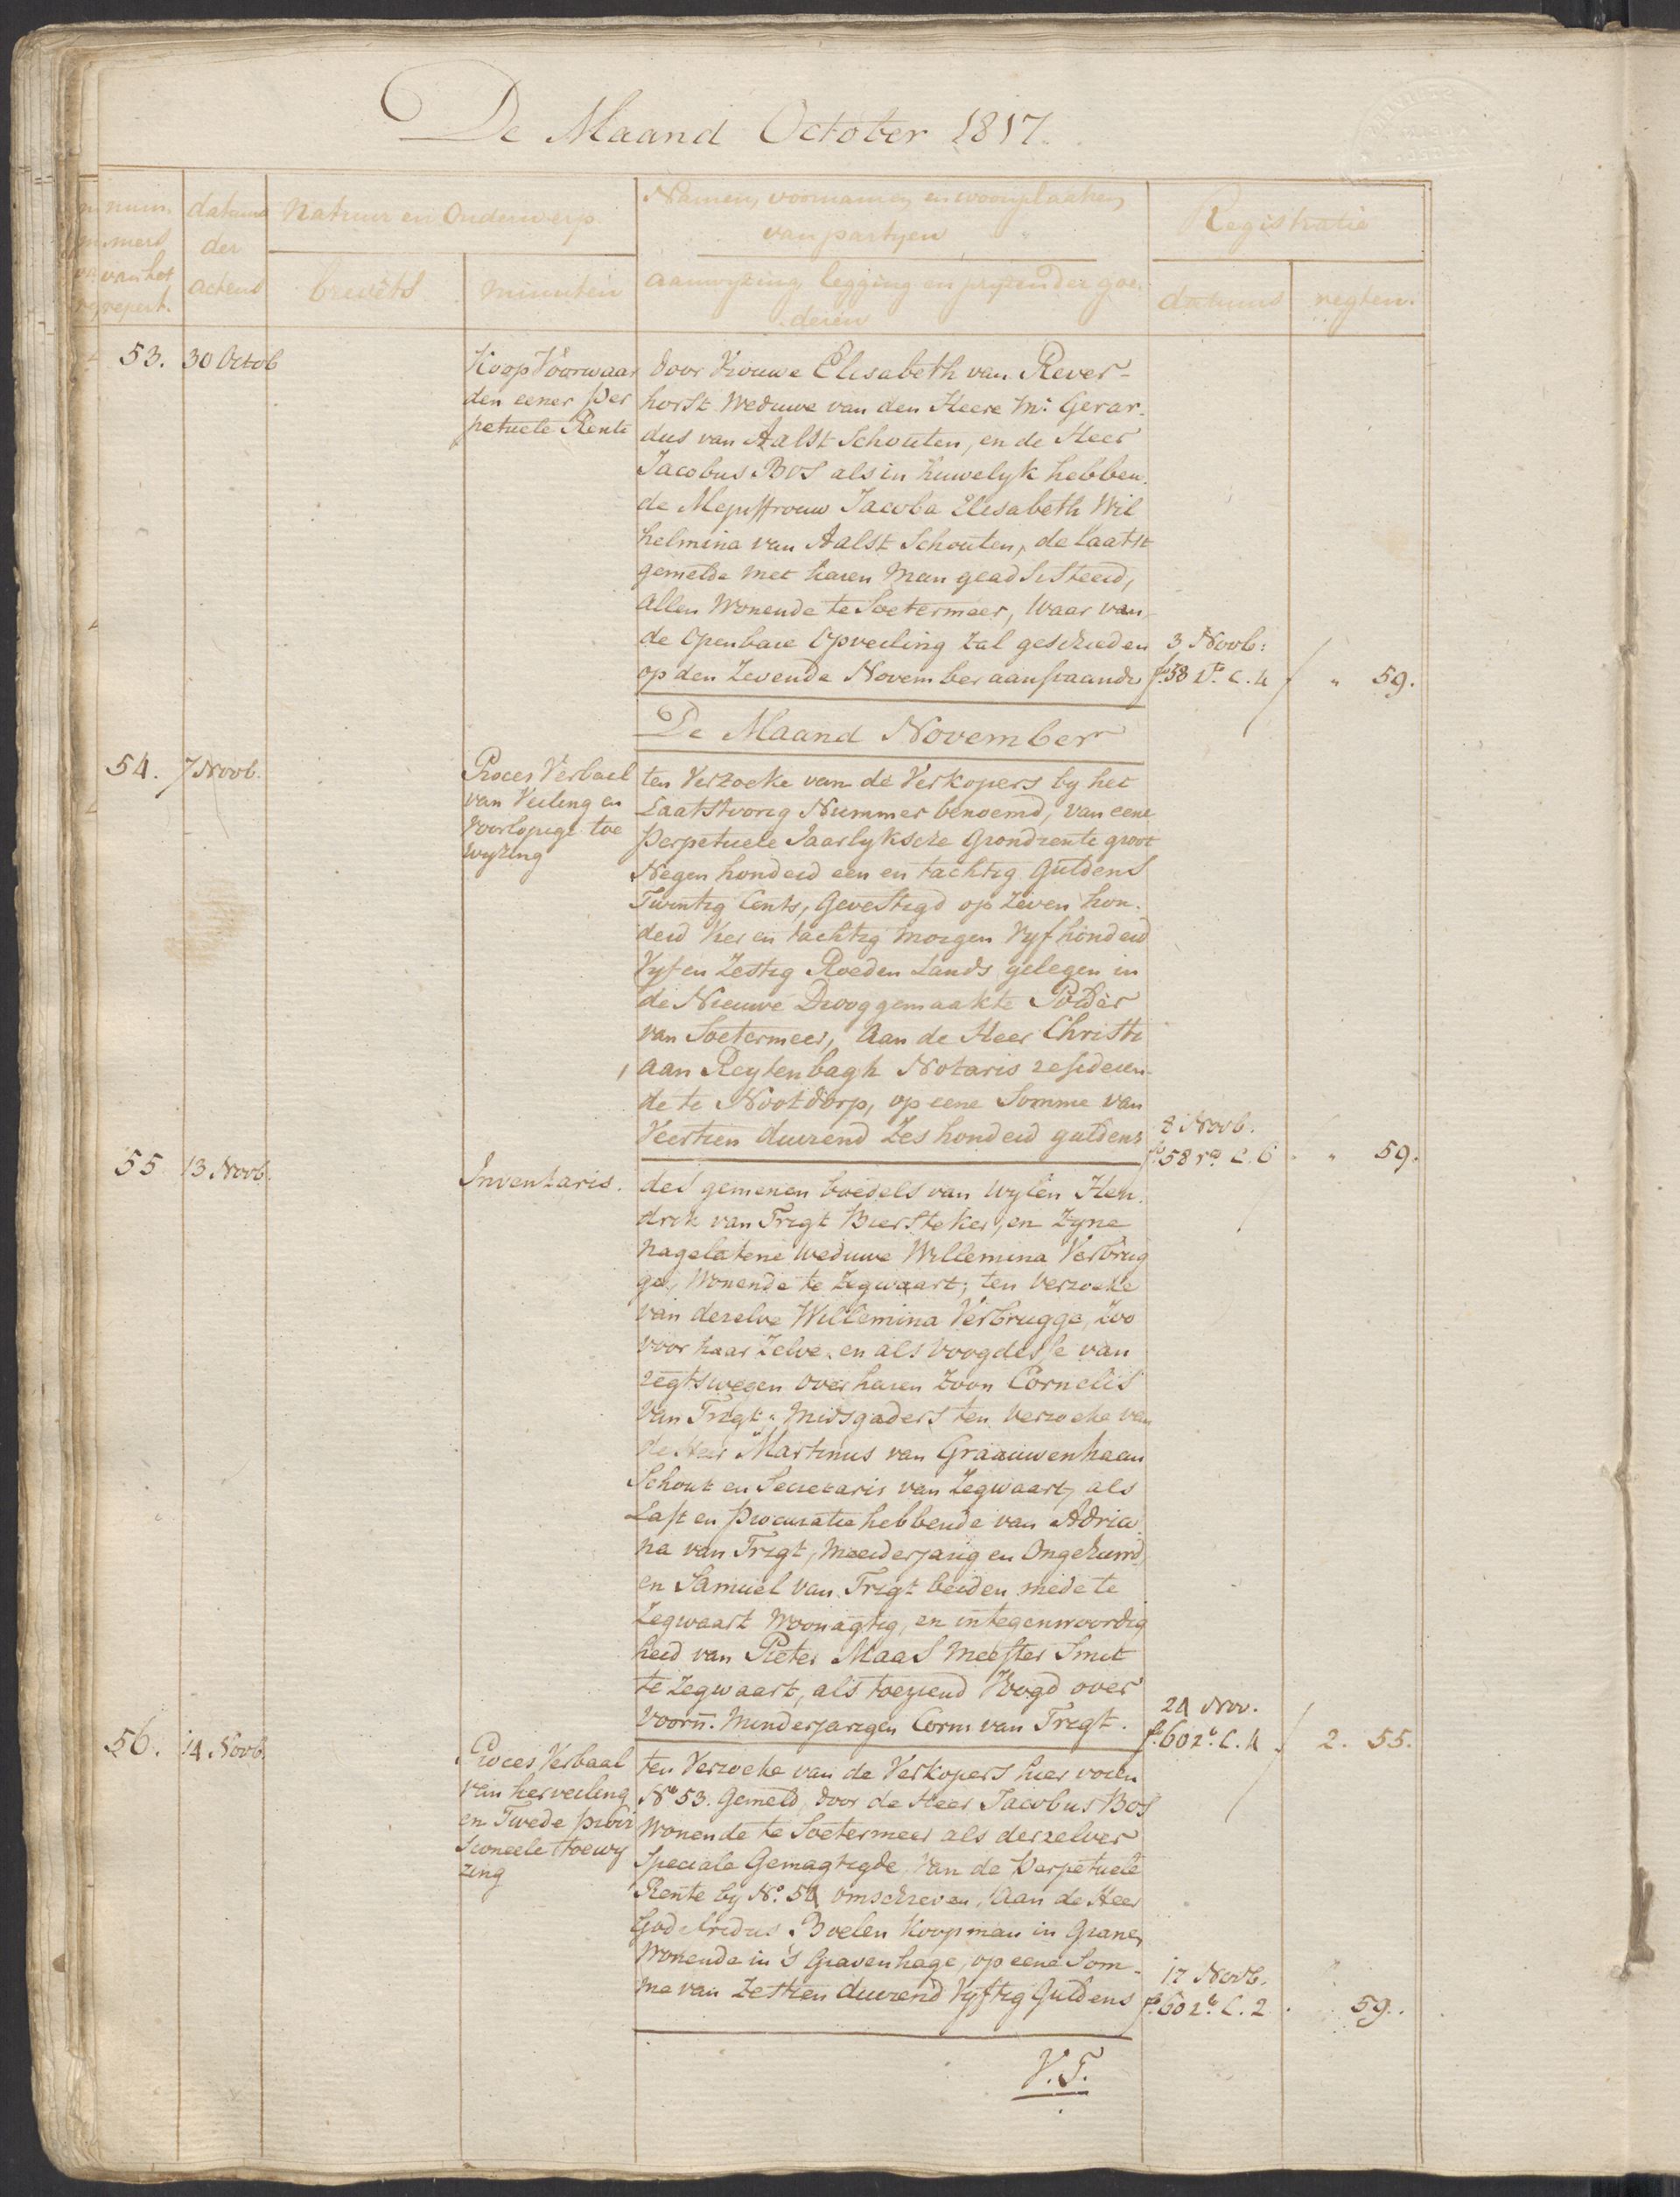 De Maand October 1817.
num
mers
van het
repert.
datums
der
actens
Natuur en Onderwerp.
brevèts
minuten
Namen, voornamen en woonplaatsen
van partyen
aanwyzing, legging en pryzen der goe-
deren
Registratie
datums
regten.
53. 30 Octob
Koop Voorwaar
den eener Per
petuele Rente
door Vrouwe Elisabeth van Rever-
horst Weduwe van den Heere Mr. Gerar-
dus van Aalst Schouten, en de Heer
Jacobus Bos als in huwelyk hebben-
de Mejuffrouw Jacoba Elisabeth Wil
helmina van Aalst Schouten, de laatst
gemelde met haren Man geadsisteerd,
allen Wonende te Soetermeer, waar van
de Openbare Opveiling zal geschieden
op den Zevende November aanstaande
3 Novb:
fo. 58 Vo. C. 4
" 59.
De Maand November
54. 7 Novb.
Proces Verbael
van Veiling en
Voorlopige toe
wyzing
ten Verzoeke van de Verkopers by het
Laatstvorig Nummer benoemd, van eene
Perpetuele Jaarlyksche Grondrente groot
Negen honderd een en tachtig Guldens
Twintig Cents, Gevestigd op Zeven hon-
derd Vier en tachtig Morgen Vyf honderd
Vyf en Zestig Roeden Lands gelegen in
de Nieuwe Drooggemaakte Polder
van Soetermeer, Aan de Heer Christi
aan Reytenbagh Notaris resideren-
de te Nootdorp, op eene Somme van
Veertien duizend Zes honderd guldens
8 Novb.
fo. 58 ro. C. 6
" 59.
55 13 Novb.
Inventaris.
des gemenen boedels van Wylen Hen-
drik van Trigt Biersteker, en Zyne
Nagelatene Weduwe Willemina Verbrug
ge, Wonende te Zegwaart; ten Verzoeke
van dezelve Willemina Verbrugge, Zoo
voor haar Zelve, en als Voogdesse van
regtswegen over haren Zoon Cornelis
van Trigt; Mitsgaders ten Verzoeke van
de Heer Martinus van Graauwenhaan
Schout en Secretaris van Zegwaart, als
Last en Procuratie hebbende van Adria-
na van Trigt, Meerderjarig en Ongehuwd,
en Samuel van Trigt beiden mede te
Zegwaart Woonagtig, en in tegenwoordig
heid van Pieter Maas Meester Smit
te Zegwaart, als toeziend Voogd over
Voorn. Minderjarigen Corns van Trigt.
24 Nov.
fo. 60 ro. C. 4
2. 55.
56. 14. Novb.
Proces Verbaal
van herveiling
en Twede provi
sioneele toewy
zing
ten Verzoeke van de Verkopers hier voren
No 53. Gemeld, door de Heer Jacobus Bos
Wonende te Soetermeer als derzelver
Speciale Gemagtigde Van de Perpetuele
Rente by No. 54 omschreven, Aan de Heer
Godefridus Boelen Koopman in Granen
Wonende in 's Gravenhage, op eene Som-
me van Zestien duizend Vyftig Guldens
17 Novb.
fo. 60 ro. C. 2
" 59.
V. T.